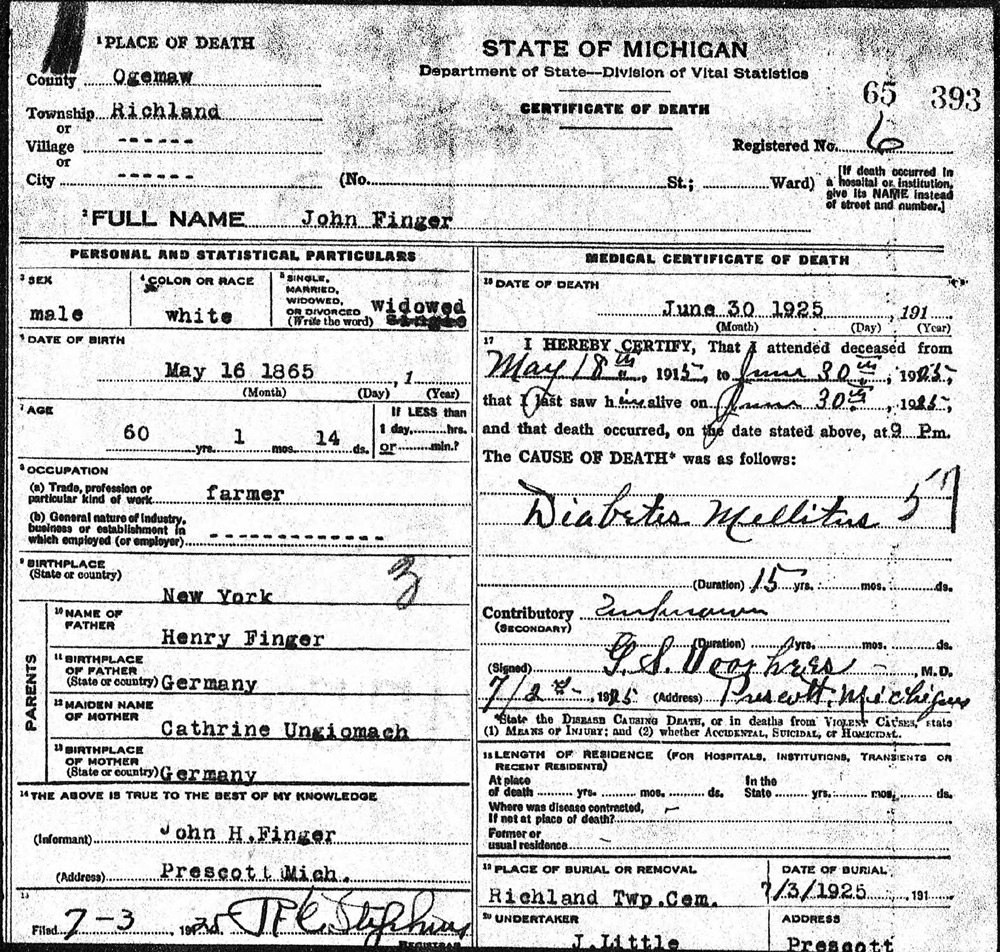 1 PLACE OF DEATH
County Ogemaw
Township Richland
or
Village ------
or
City ------
STATE OF MICHIGAN
Department of State—Division of Vital Statistics
CERTIFICATE OF DEATH
65 393
Registered No. 6
(No. St.; Ward)
[If death occurred in
a hospital or institution,
give its NAME instead
of street and number.]
2 FULL NAME John Finger
PERSONAL AND STATISTICAL PARTICULARS
3 SEX
male
4 COLOR OR RACE
white
5 SINGLE,
MARRIED,
WIDOWED,
OR DIVORCED
(Write the word)
Widowed
Single
6 DATE OF BIRTH
May 16 1865 , 1
(Month) (Day) (Year)
7 AGE
60 yrs. 1 mos. 14 ds.
If LESS than
1 day, hrs.
or min.?
8 OCCUPATION
(a) Trade, profession or
particular kind of work farmer
(b) General nature of industry,
business or establishment in
which employed (or employer) -------------
9 BIRTHPLACE
(State or country)
New York
3
PARENTS
10 NAME OF
FATHER
Henry Finger
11 BIRTHPLACE
OF FATHER
(State or country) Germany
12 MAIDEN NAME
OF MOTHER
Cathrine Ungiomach
13 BIRTHPLACE
OF MOTHER
(State or country) Germany
14 THE ABOVE IS TRUE TO THE BEST OF MY KNOWLEDGE
(Informant) John H.Finger
(Address) Prescott Mich.
15
Filed 7-3 1925
REGISTRAR
MEDICAL CERTIFICATE OF DEATH
16 DATE OF DEATH
June 30 1925 , 191
(Month) (Day) (Year)
17 I HEREBY CERTIFY, That I attended deceased from
May 18th, 1915, to June 30th, 1925,
that I last saw him alive on June 30th, 1925,
and that death occurred, on the date stated above, at 9 Pm.
The CAUSE OF DEATH* was as follows:
Diabetis Mellitus 57
(Duration) 15 yrs. mos. ds.
Contributory Unknown
(SECONDARY)
(Duration) yrs. mos. ds.
(Signed) G. S. Voorhees , M.D.
7/2nd 1925 (Address) Prescott, Michigan
*State the DISEASE CAUSING DEATH, or in deaths from VIOLENT CAUSES, state
(1) MEANS OF INJURY; and (2) whether ACCIDENTAL, SUICIDAL, or HOMICIDAL.
18 LENGTH OF RESIDENCE (FOR HOSPITALS, INSTITUTIONS, TRANSIENTS OR
RECENT RESIDENTS)
At place In the
of death yrs. mos. ds. State yrs. mos. ds.
Where was disease contracted,
If not at place of death?
Former or
usual residence
19 PLACE OF BURIAL OR REMOVAL
Richland Twp.Cem.
DATE OF BURIAL
7/3/1925 191
20 UNDERTAKER
J.Little
ADDRESS
Prescott